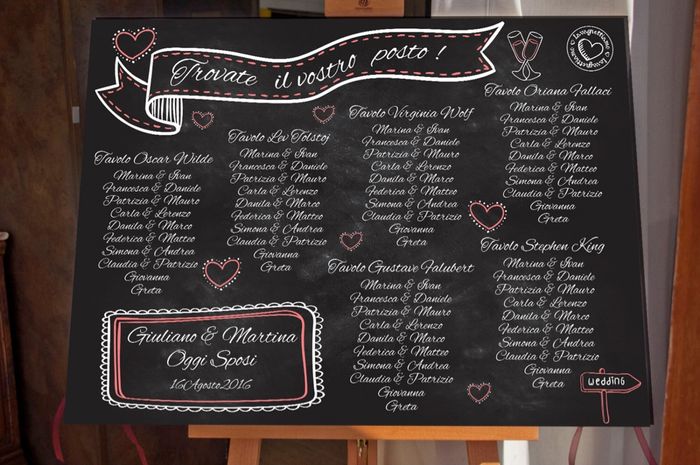 Trovate il vostro posto !
Tavolo Oscar Wilde
Marina & Ivan
Francesca & Daniele
Patrizia & Mauro
Carla & Lorenzo
Danila & Marco
Federica & Matteo
Simona & Andrea
Claudia & Patrizio
Giovanna
Greta
Tavolo Lev Tolstoj
Marina & Ivan
Francesca & Daniele
Patrizia & Mauro
Carla & Lorenzo
Danila & Marco
Federica & Matteo
Simona & Andrea
Claudia & Patrizio
Giovanna
Greta
Tavolo Virginia Wolf
Marina & Ivan
Francesca & Daniele
Patrizia & Mauro
Carla & Lorenzo
Danila & Marco
Federica & Matteo
Simona & Andrea
Claudia & Patrizio
Giovanna
Greta
Tavolo Oriana Fallaci
Marina & Ivan
Francesca & Daniele
Patrizia & Mauro
Carla & Lorenzo
Danila & Marco
Federica & Matteo
Simona & Andrea
Claudia & Patrizio
Giovanna
Greta
Tavolo Gustave Falubert
Marina & Ivan
Francesca & Daniele
Patrizia & Mauro
Carla & Lorenzo
Danila & Marco
Federica & Matteo
Simona & Andrea
Claudia & Patrizio
Giovanna
Greta
Tavolo Stephen King
Marina & Ivan
Francesca & Daniele
Patrizia & Mauro
Carla & Lorenzo
Danila & Marco
Federica & Matteo
Simona & Andrea
Claudia & Patrizio
Giovanna
Greta
Giuliano & Martina
Oggi Sposi
16 Agosto 2016
wedding